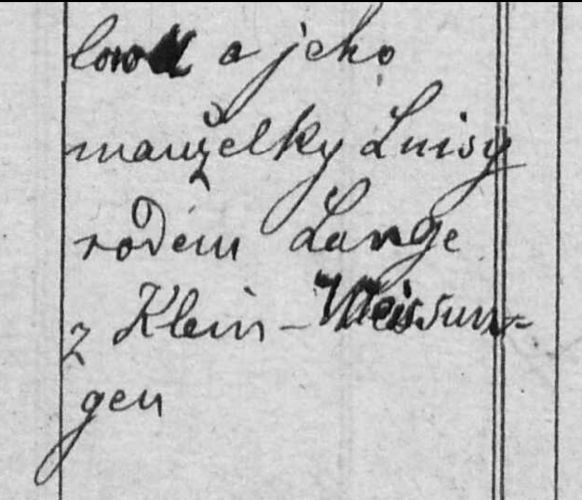 a jeho
manželky Luisy
rodem Lange
z Klein-Weissun-
gen